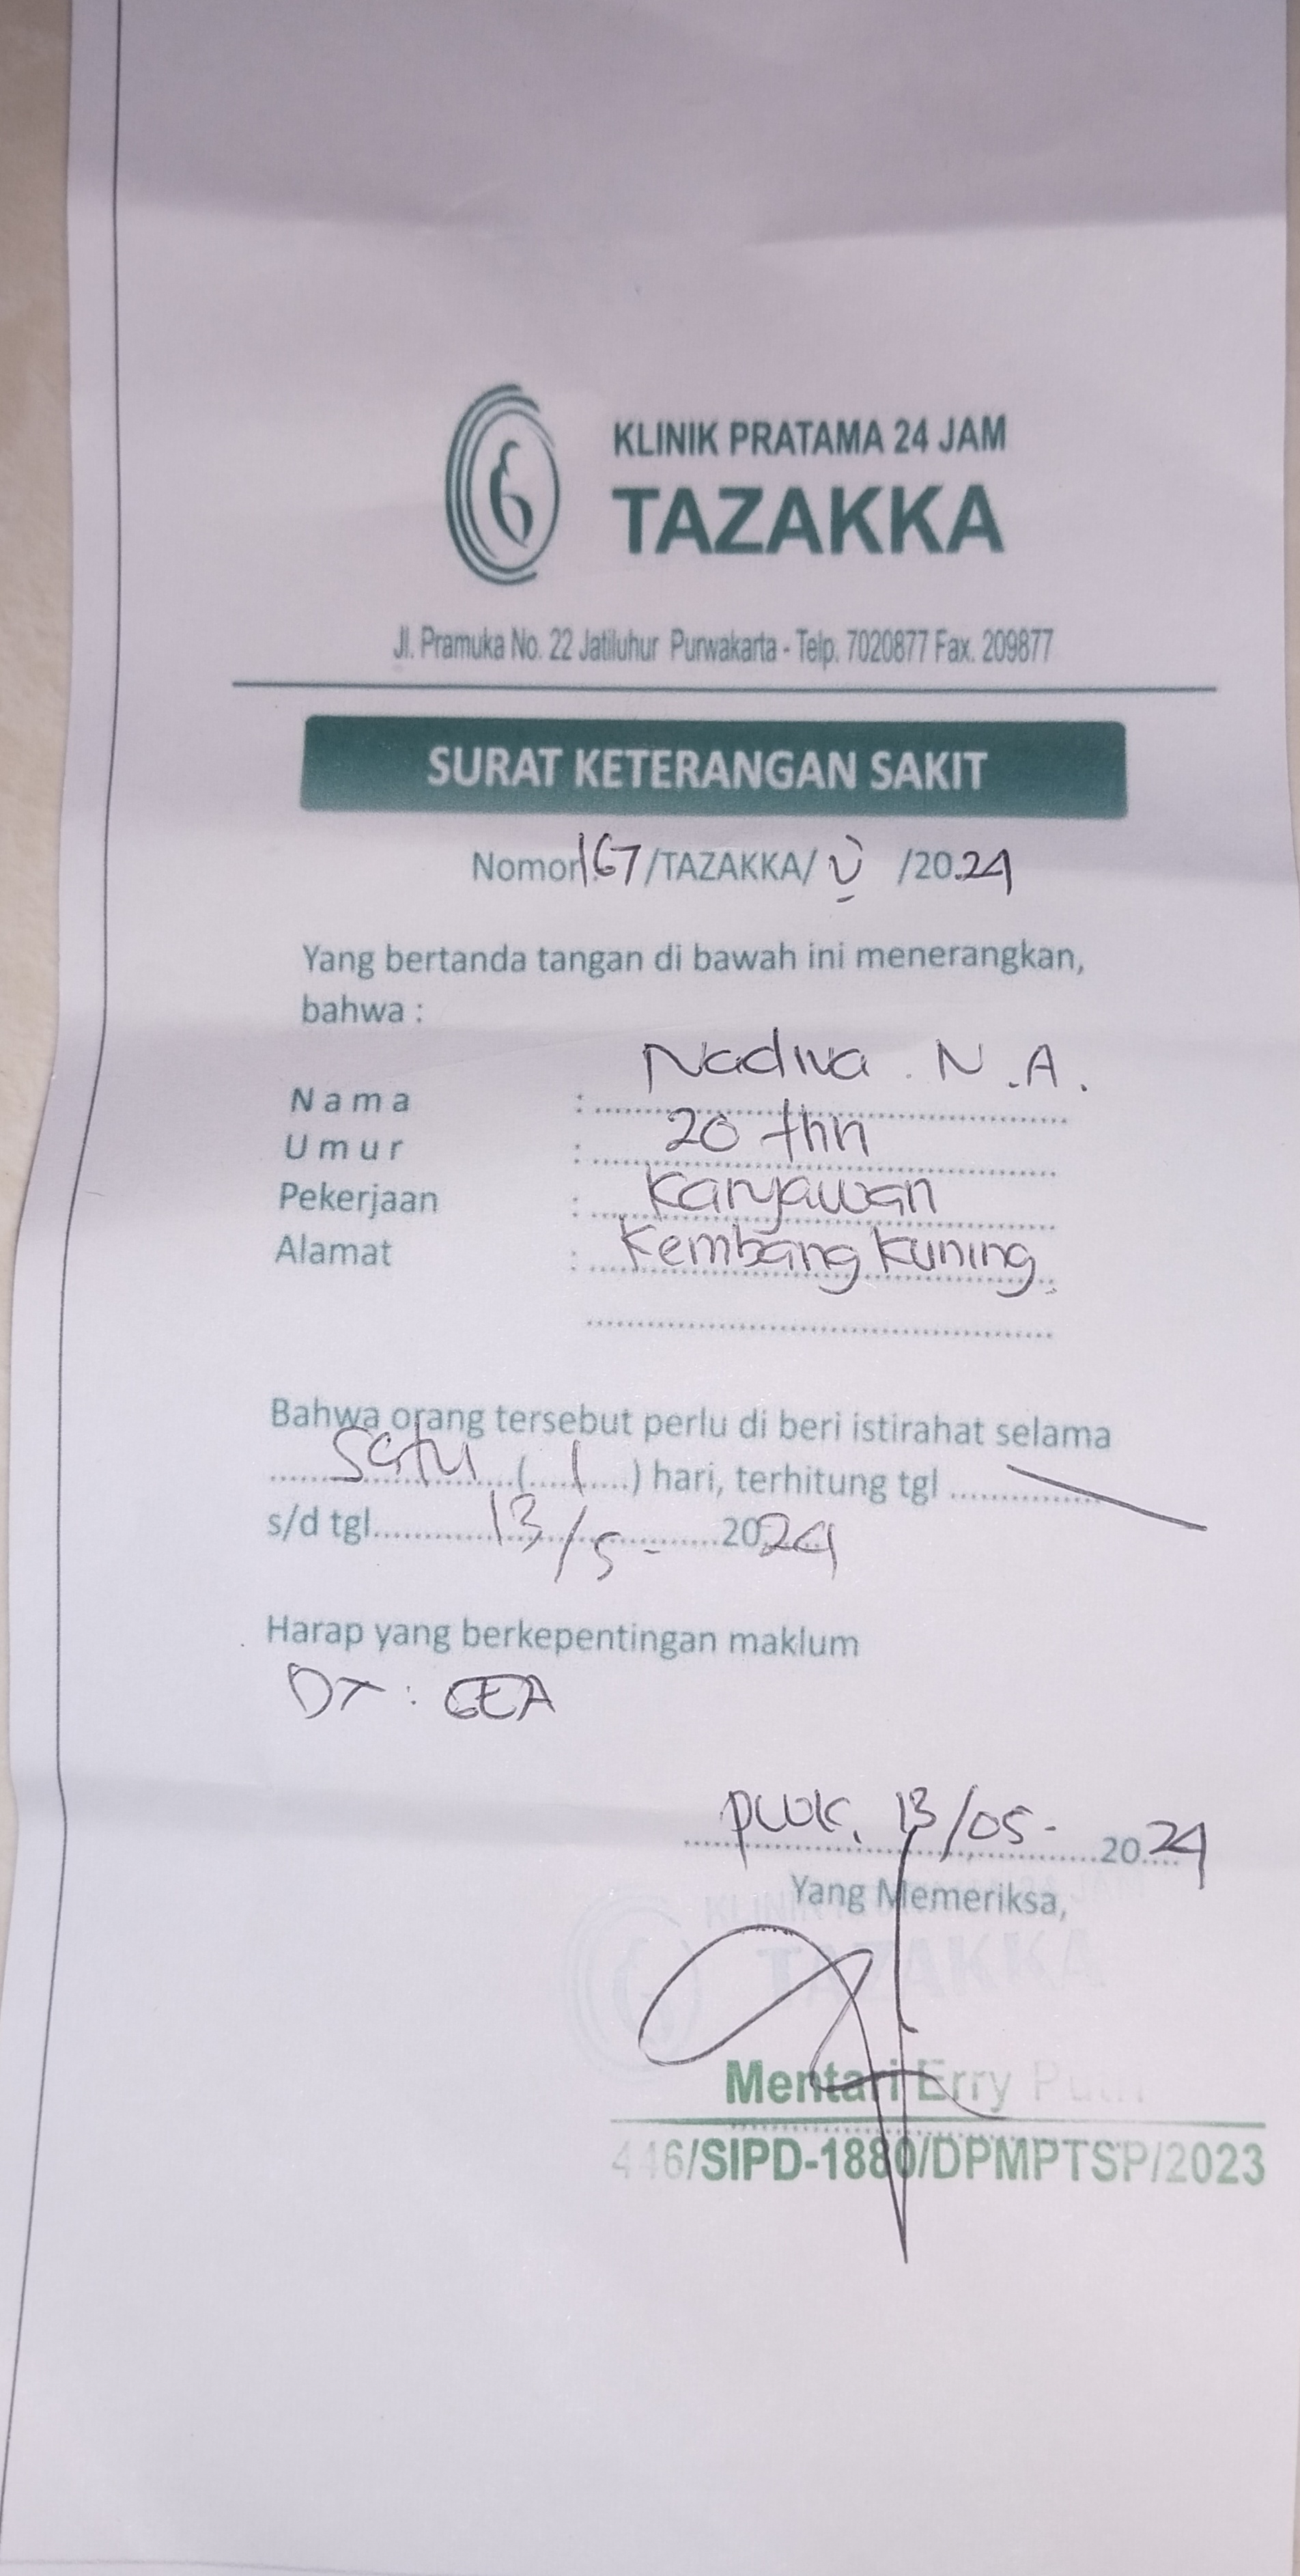 KLINIK PRATAMA 24 JAM
TAZAKKA
Jl. Pramuka No. 22 Jatiluhur Purwakarta - Telp. 7020877 Fax. 209877
SURAT KETERANGAN SAKIT
Nomor 167/TAZAKKA/ V /2024
Yang bertanda tangan di bawah ini menerangkan,
bahwa :
Nama : Nadiva. N.A.
Umur : 20 thn
Pekerjaan : Karyawan
Alamat : Kembang Kuning
Bahwa orang tersebut perlu di beri istirahat selama
Satu ( 1 ) hari, terhitung tgl
s/d tgl 13/5- 2024
Harap yang berkepentingan maklum
DX : GEA
PWK, 13/05- 2024
Yang Memeriksa,
KLINIK JAM
TAZAKKA
Mentari Erry Putri
446/SIPD-1880/DPMPTSP/2023